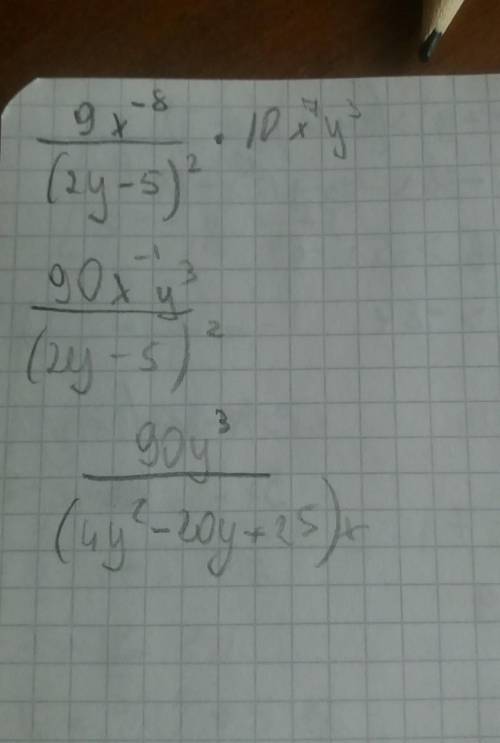 9x⁻⁸/(2y-5)² · 10x⁷y³
90x⁻¹y³/(2y-5)²
90y³/(4y²-20y+25)x